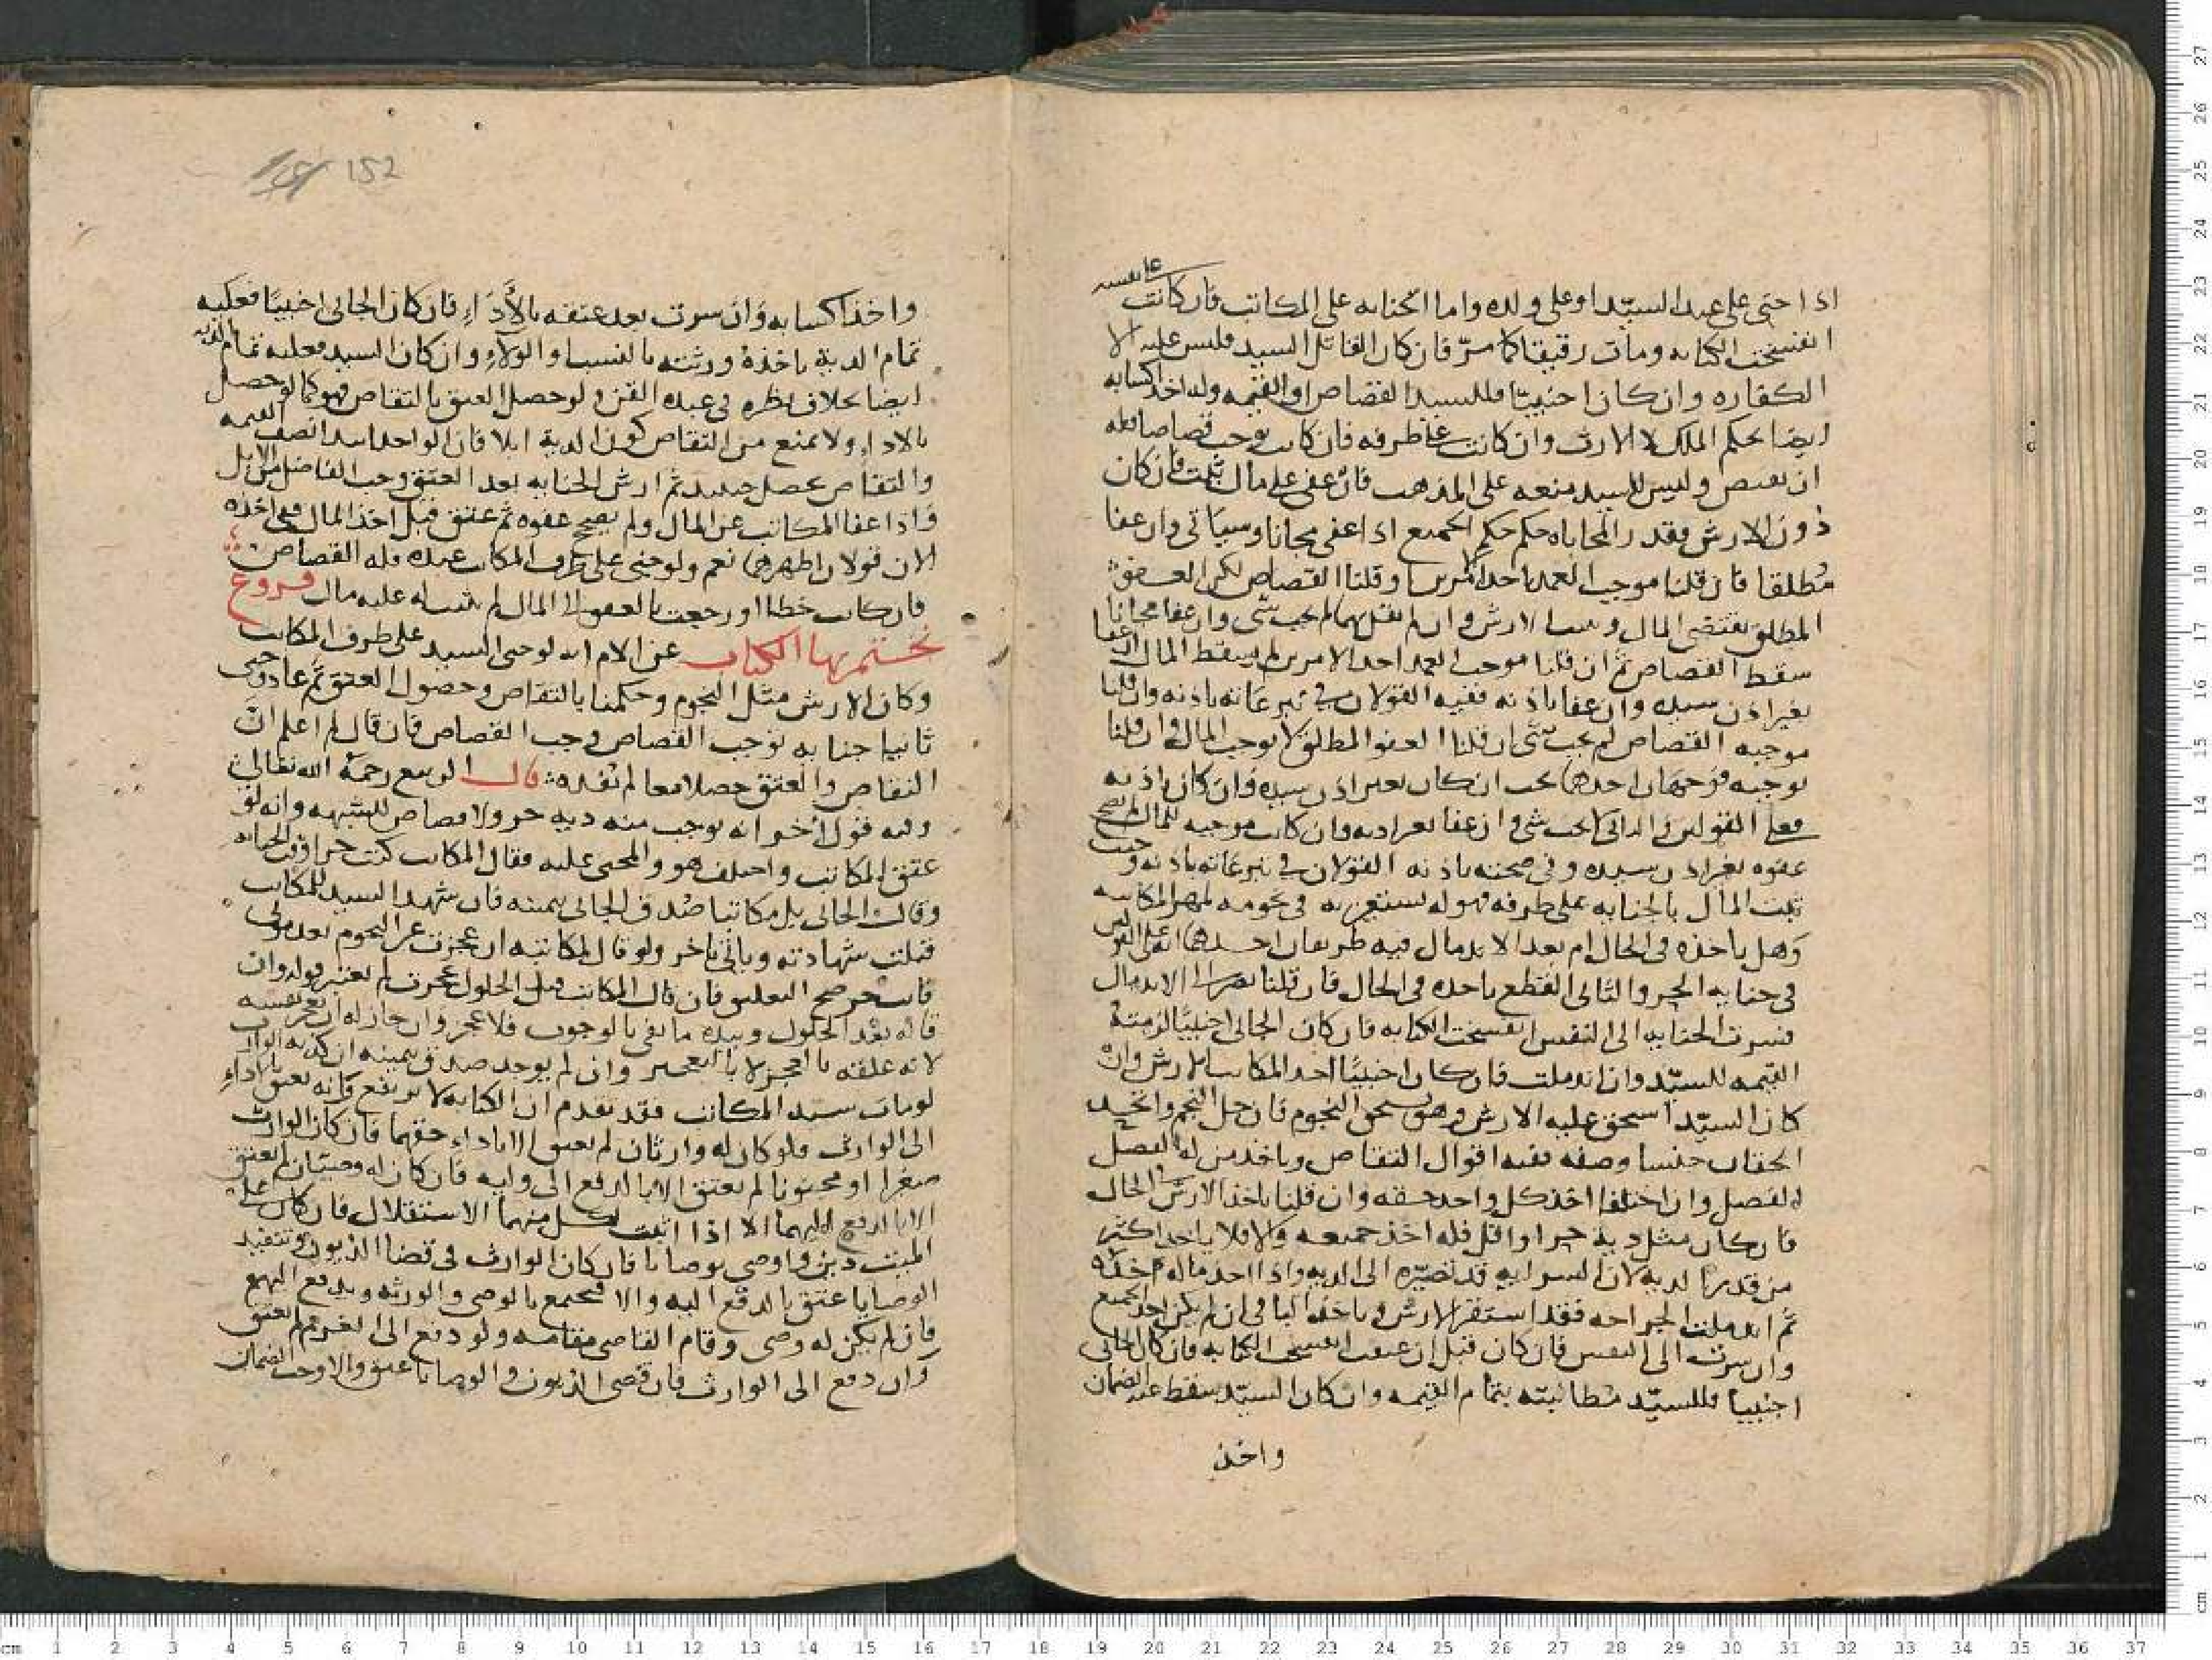 على نفسه
اذا جنى على عبد السيّد او على ولده واما الجنايه على المكاتب فان كانت
انفسخت الكتابه ومات رقيقا كما مرّ فان كان القاتل السيد فليس عليه الا
الكفاره وان كان اجنبيّا فللسيد القصاص او القيمه وله اخذ اكسابه
ايضا بحكم الملك لا الارث وان كانت على طرفه فان كانت توجب قصاصا فله
ان يقتص وليس للسيد منعه على المذهب فان عفى على مال ثبت فان كان
دون الارش فقدر المحاباه حكمه حكم الجميع اذا عفى مجانا وسياتي وان عفا
مُطلقا فان قلنا موجب العمد احد الامرين او قلنا القصاص لكن العفو
المطلق يقتضي المال وجب الارش وان لم نقل بهما لم يجب شي وان عفا مجانا
سقط القصاص ثم ان قلنا موجب العمد احد الامرين لم يسقط المال ان عفا
بغير اذن سيده وان عفا باذنه ففيه القولان في تبرعاته باذنه وان قلنا
موجبه القصاص لم يجب شي ان قلنا العفو المطلق لا يوجب المال وان قلنا
يوجبه فوجهان احدهما يجب ان كان بغير اذن سيده فان كان اذنه
فعلى القولين والثاني لا يجب شي وان عفا بغير اذنه وان كانت موجبه للمال لم يصح
عفوه بغير اذن سيده وفي صحته باذنه القولان في تبرعاته باذنه وحيث
ثبت المال بالجنايه على طرفه فهو له يستعين به في نجومه كمهر المكاتبه
وهل ياخذه في الحال ام بعد الاندمال فيه طريقان احدهما على القولين
في جنايه الحر والثاني القطع باخذه في الحال فان قلنا يصبر الى الاندمال
فسرت الجنايه الى النفس انفسخت الكتابه فان كان الجاني اجنبيًا لزمته
القيمه للسيّد وان اندملت فان كان اجنبيًا اخذ المكاتب الارش وان
كان السيّد استحق عليه الارش وهو يستحق النجوم فان حل النجم واتحد
الحقان جنسا وصفه ففيه اقوال التقاص وياخذ من له الفضل
الفضل وان اختلفا اخذ كل واحد حقه وان قلنا ياخذ الارش في الحال
فان كان مثل دية حر او اقل فله اخذ جميعه والا فلا ياخذ اكثر
من قدر الديه لان السرايه قد تصيّره الى الديه واذا اخذ ماله اخذه
ثم اندملت الجراحه فقد استقر الارش وياخذ الباقي ان لم يكن اخذ الجميع
وان سرت الى النفس فان كان قبل ان يعتق انفسخت الكتابه فان كان الجاني
اجنبيا فللسيّد مطالبته بتمام القيمه وان كان السيّد سقط عنه الضمان
واخذ
152
واخذ اكسابه وان سرت بعد عتقه بالأَدَاءِ فان كان الجاني اجنبيًا فعليه
تمام الدية ياخذه ورثته بالنسب او الولاء وان كان السيد فعليه تمام الديه
ايضا بخلاف نظيره في عبده القن ولو حصل العتق بالتقاص فهو كما لو حصل
بالاداء ولا يمنع من التقاص كون الدية ابلا فان الواجب ابتدا نصف القيمه
والتقاص يحصل حينئذ ثم ارش الجنايه بعد العتق وجب الفاضل من الابل
واذا عفا المكاتب عن المال ولم يصح عفوه ثم عتق قبل اخذ المال فهل اخذه
الان قولان اظهرهما نعم ولو جنى على طرف المكاتب عبده فله القصاص
فان كانت خطأ او رجعت بالعفو الى المال لم يثبت له عليه مال فروع
نختتم بها الكتاب عن الام انه لو جنى السيد على طرف المكاتب
وكان الارش مثل النجوم وحكمنا بالتقاص وحصول العتق ثم عاد وجنى
ثانيا جنايه توجب القصاص وجب القصاص فان قال لم اعلم ان
التقاص والعتق حصلا معا لم نفده قال الربيع رحمه الله تعالى
وفيه قول اخر انه يوجب منه ديه حر ولا قصاص للشبهه وانه لو
عتق المكاتب واختلف هو والمجني عليه فقال المكاتب كنت حرا وقت الجنايه
وقال الجاني بل مكاتبا صُدق الجاني بيمينه فان شهد السيد للمكاتب
قبلت شهادته وياتي باخر ولو قال لمكاتبه ان عجزت عن النجوم بعد موتي
فانت حر صح التعليق فان قال المكاتب قبل الحلول عجزت لم يعتبر قوله وان
قاله بعد الحلول وبيده ما يفي بالوجوب فلا عجز وان جاز له ان يعجز نفسه
لانه علقه بالعجز لا بالتعجيز وان لم يوجد صدق بيمينه ان كذبه الوارث
لو مات سيد المكاتب فقد تقدم ان الكتابه لا ترتفع وانه يعتق بالاداءِ
الى الوارث فلو كان له وارثان لم يعتق الا باداءِ حقهما فان كان الوارث
صغيرا او مجنونا لم يعتق الا بالدفع الى وليه فان كان له وصيّان لم يعتق
الا بالدفع اليهما الا اذا اثبت لكل منهما الاستقلال فان كان على
الميت دين واوصى بوصايا فان كان الوارث في قضا الديون وتنفيذ
الوصايا عتق بالدفع اليه والا فيجمع بالوصي والورثه ويدفع اليهم
فان لم يكن له وصي وقام القاضي مقامه ولو دفع الى الغريم لم يعتق
وان دفع الى الوارث فان قضى الديون والوصايا عتق والا وجب الضمان